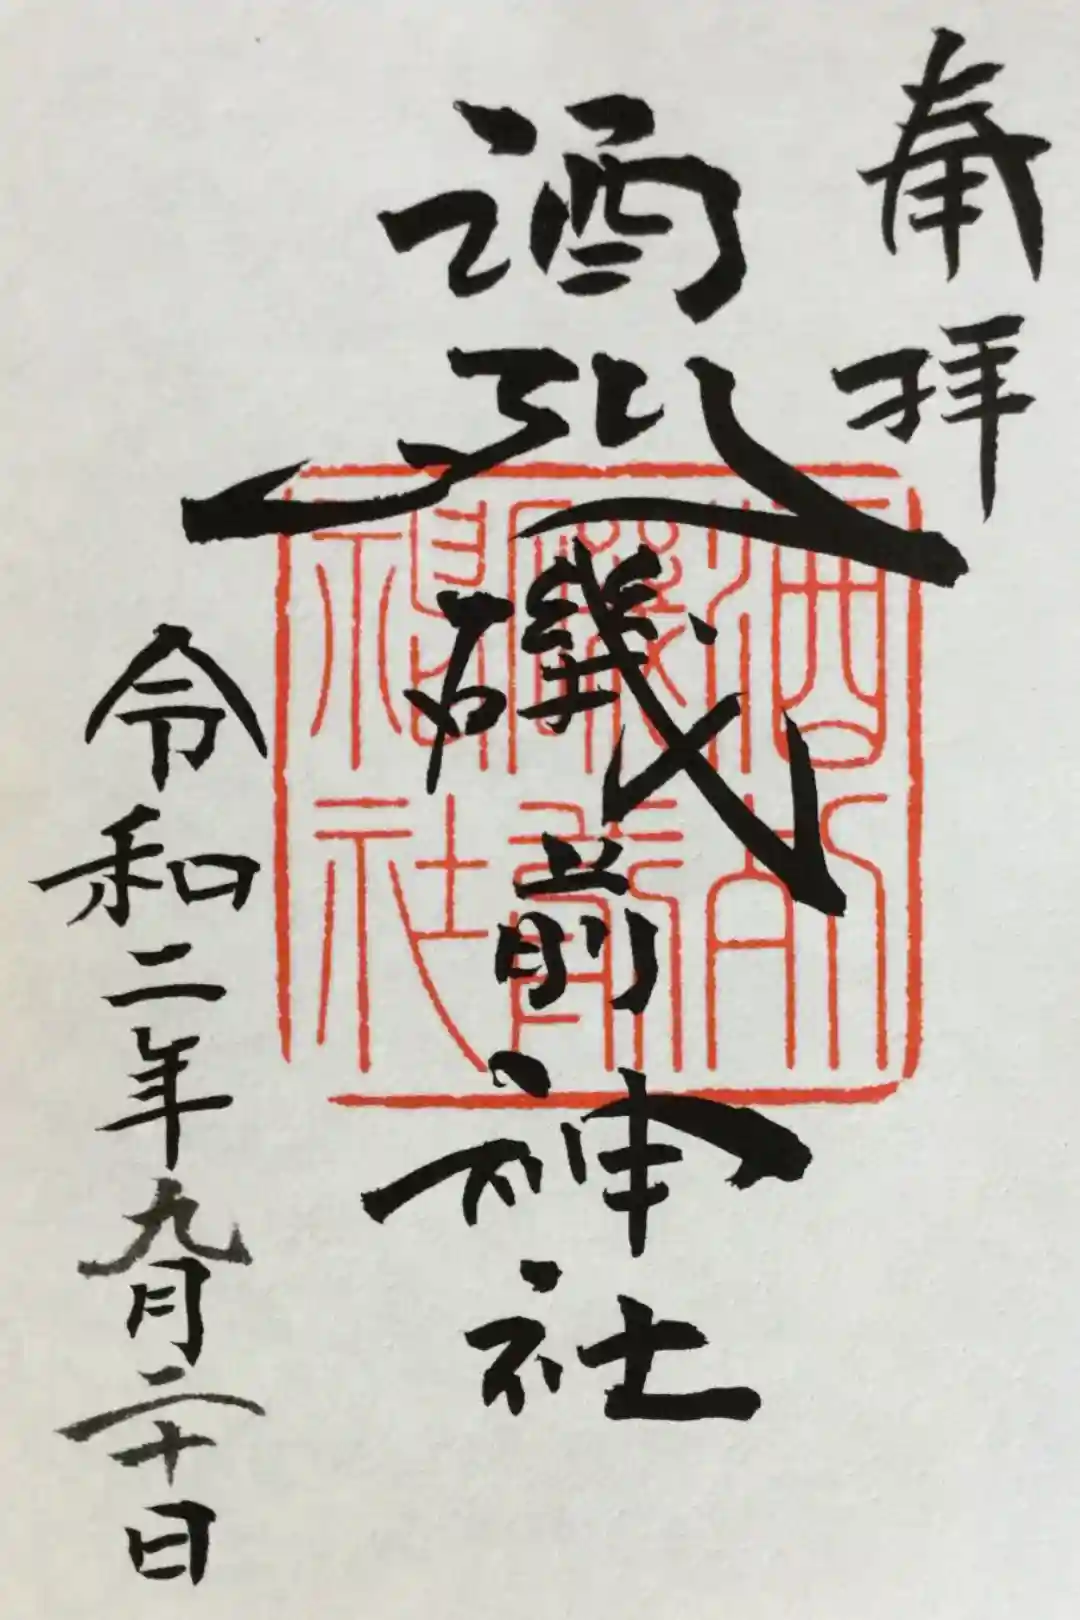 奉拝
酒列磯前神社
令和二年九月二十日
酒列
磯前
神社